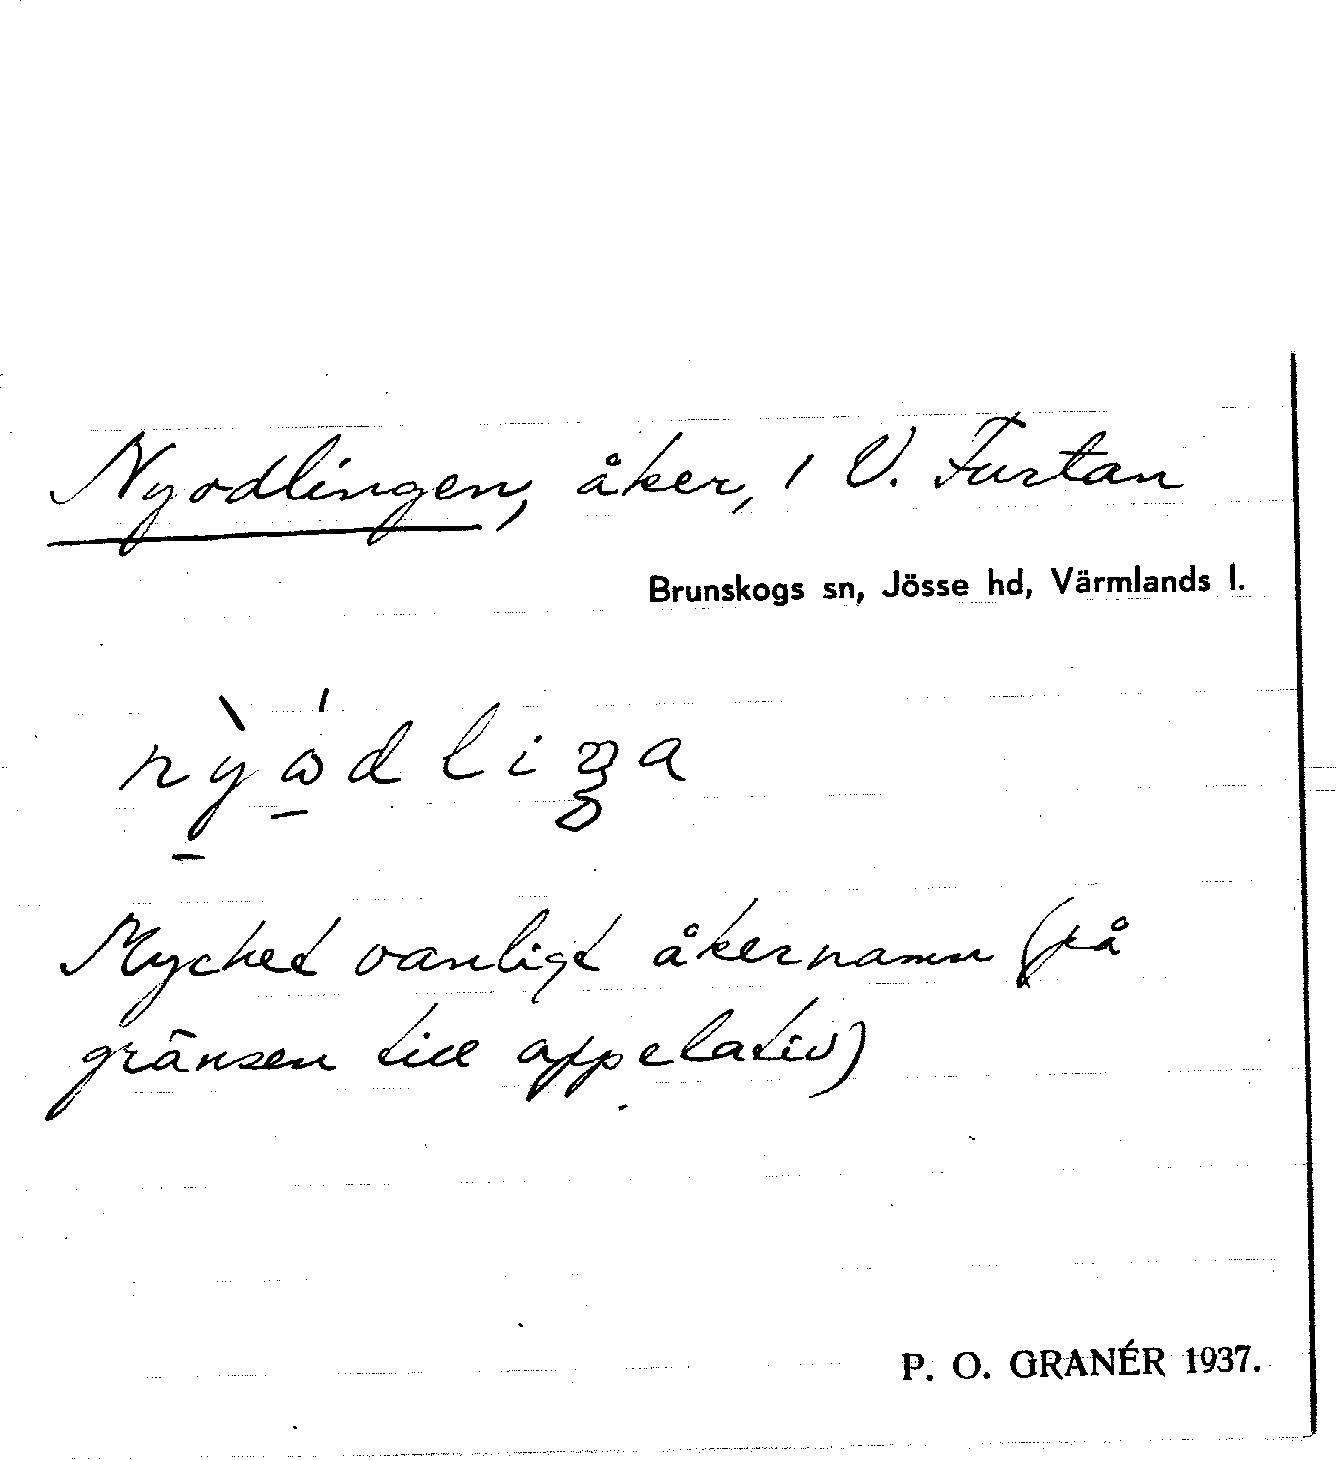 Nyodlingen, åker, 1 V. Furtan
Brunskogs sn, Jösse hd, Värmlands l.
Mycket vanligt åkernamn (på
gränsen till appelativ)
P. O. GRANÉR 1937.